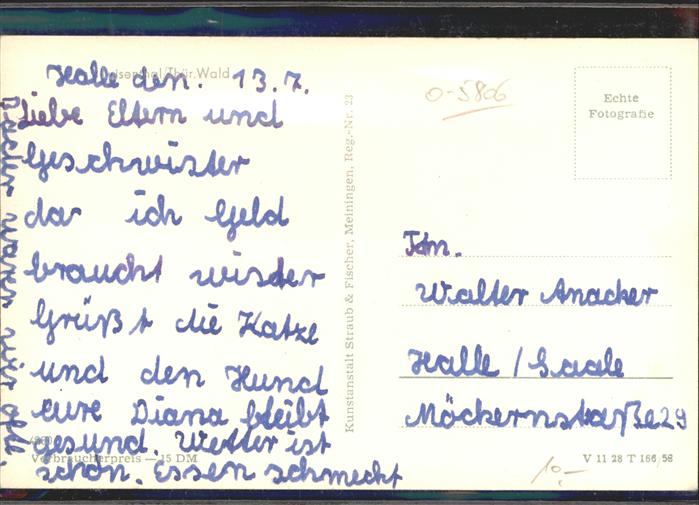 Luisenthal/Thür. Wald
Halle den. 13.7.
Liebe Eltern und
Geschwister
da ich Geld
braucht wieder
Grüßt die Katze
und den Hund
eure Diana bleibt
gesund. Wetter ist
schön. Essen schmeckt
Verbraucherpreis — 15 DM
Kunstanstalt Straub & Fischer, Meiningen, Reg.-Nr. 23
0-5806
Echte
Fotografie
Fam.
Walter Anacker
Halle / Saale
Möckernstraße 29
V 11 28 T 166/58
10.-